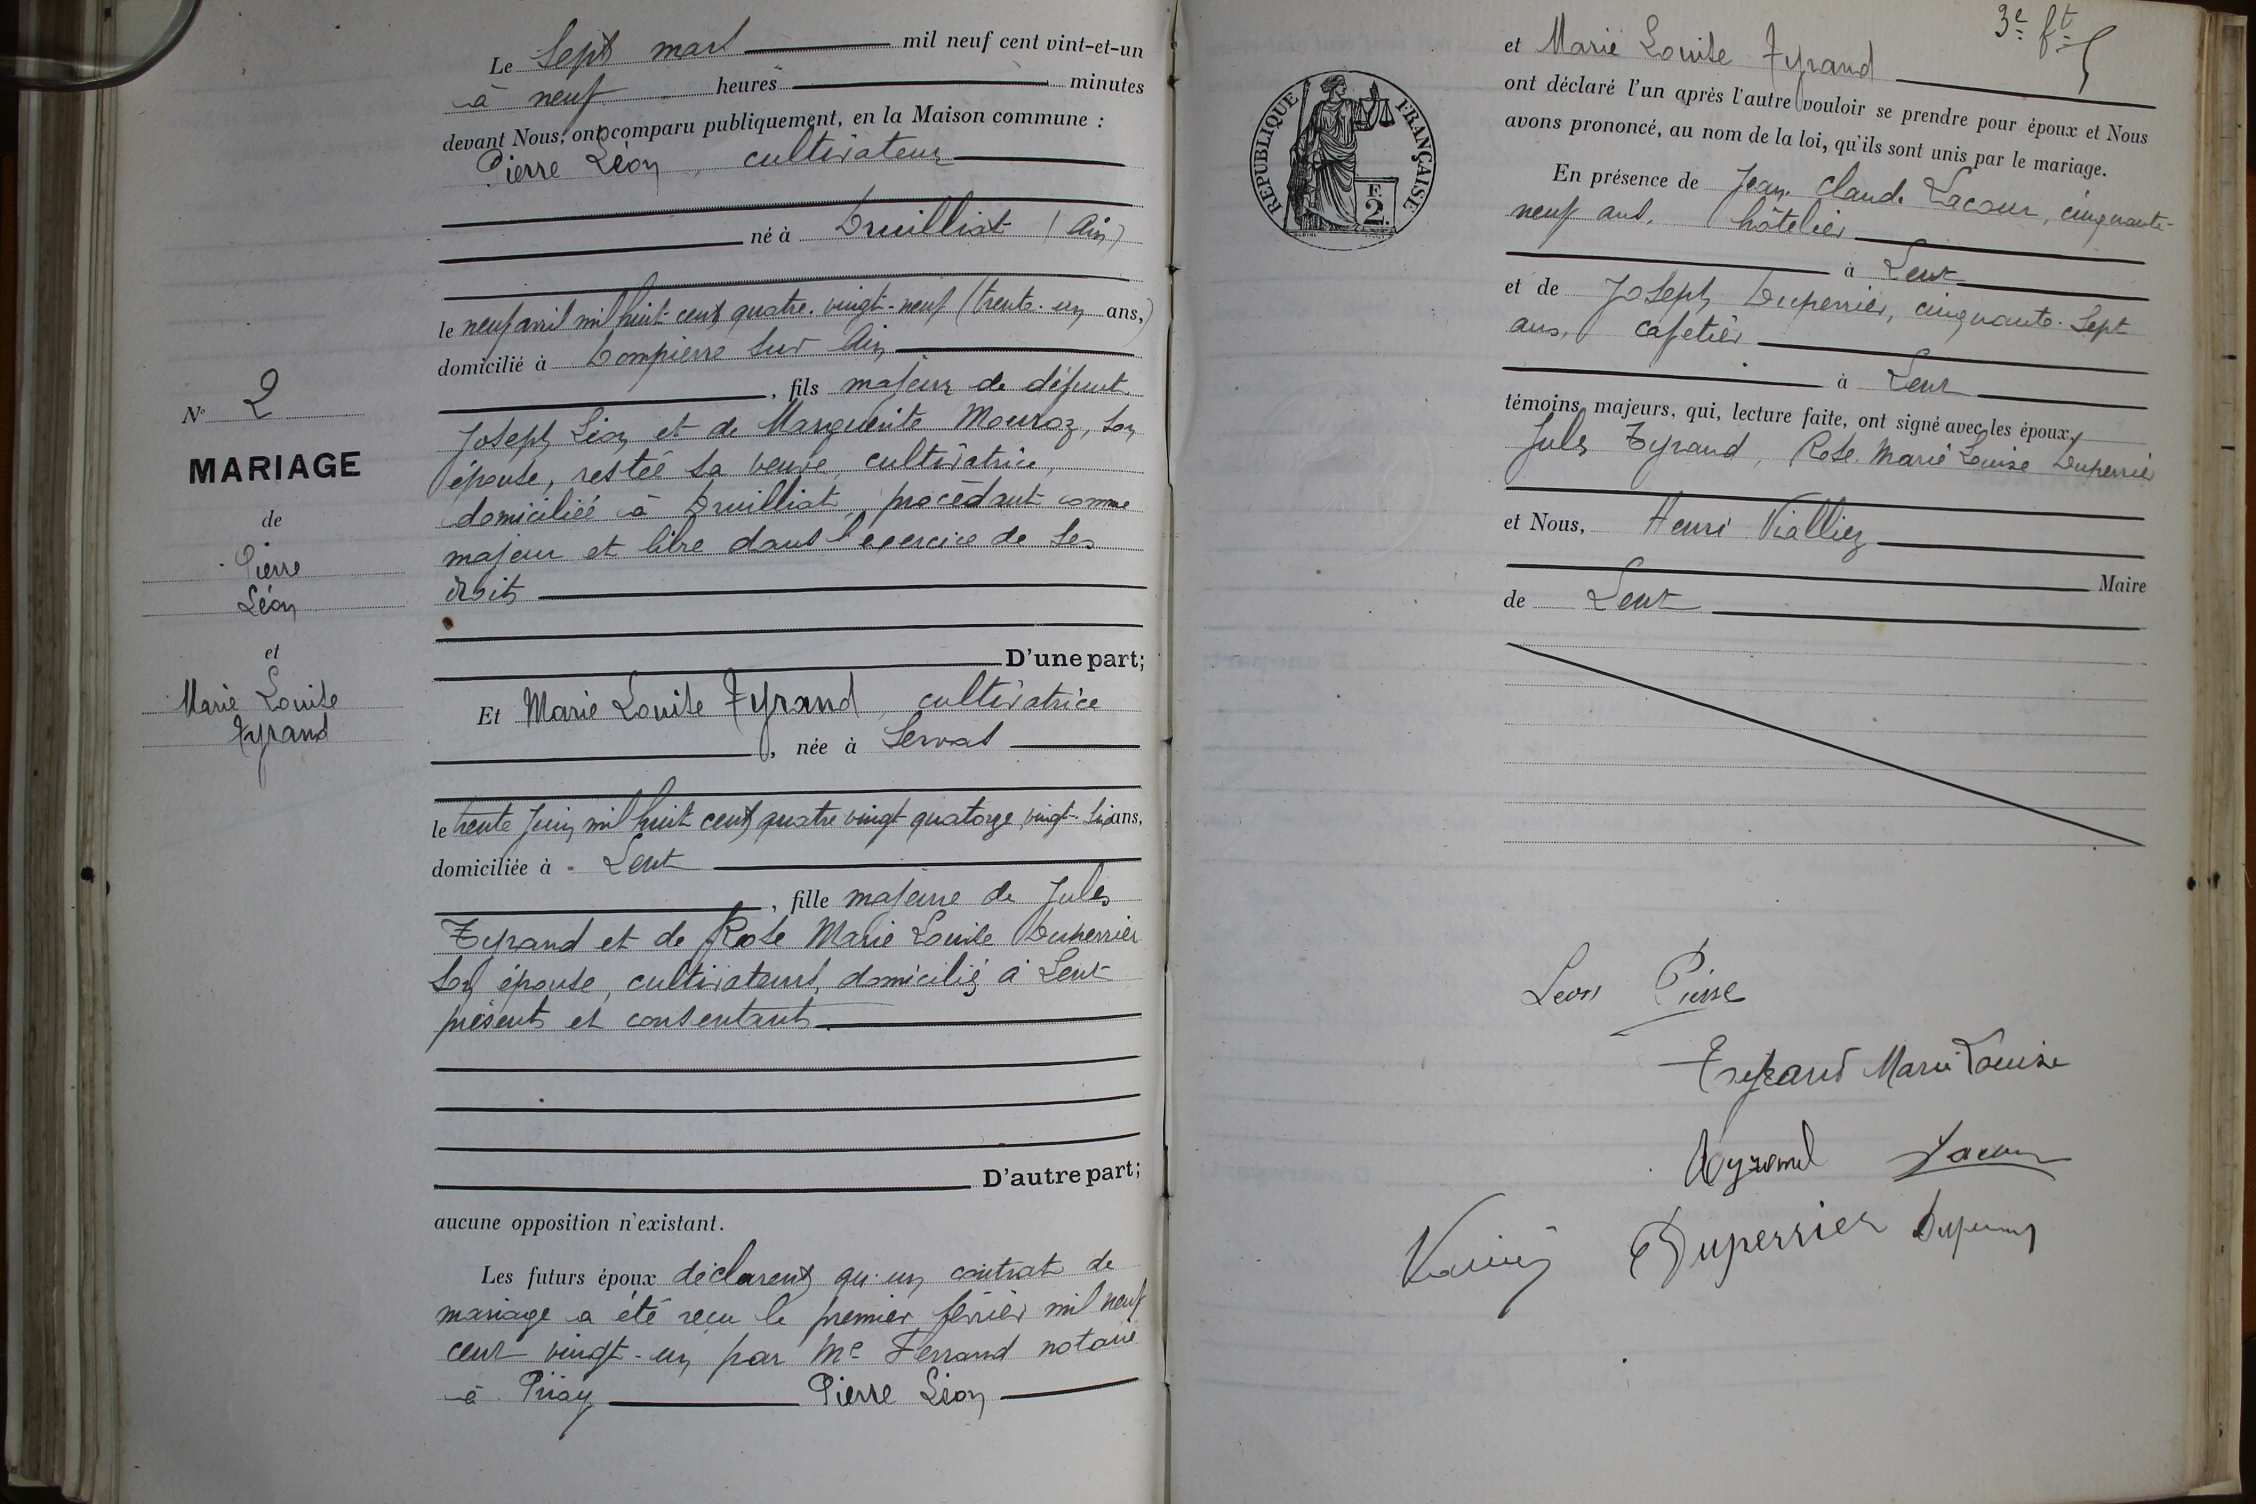 Le sept mars mil neuf cent vint-et-un
à neuf heures minutes
devant Nous, ont comparu publiquement, en la Maison commune :
Pierre Léon, cultivateur
né à Druilliat (Ain)
le neuf avril mil huit cent quatre-vingt-neuf (trente-un ans,)
domicilié à Dompierre sur Ain
, fils majeur de défunt
Joseph Léon et de Marguerite Mouroz, son
épouse, restée sa veuve, cultivatrice,
domiciliée à Druilliat, procédant comme
majeur et libre dans l'exercice de ses
droits
D'une part;
N° 2
MARIAGE
de
Pierre
Léon
et
Marie Louise
Tyrand
Et Marie Louise Tyrand, cultivatrice
, née à Servas
le trente juin mil huit cent quatre vingt quatorze, vingt-six ans,
domiciliée à Lent
, fille majeure de Jules
Tyrand et de Rose Marie Louise Duperrier
son épouse, cultivateurs, domiciliés à Lent
présents et consentants.
D'autre part;
aucune opposition n'existant.
Les futurs époux déclarent qu'un contrat de
mariage a été reçu le premier février mil neuf
cent vingt-un par Me Ferrand notaire
à Priay Pierre Léon
3e ft
RÉPUBLIQUE FRANÇAISE
F.
2.
et Marie Louise Tyrand
ont déclaré l'un après l'autre vouloir se prendre pour époux et Nous
avons prononcé, au nom de la loi, qu'ils sont unis par le mariage.
En présence de Jean Claude Lacour, cinquante-
neuf ans, hôtelier
à Lent
et de Joseph Duperrier, cinquante-sept
ans, cafetier
à Lent
témoins majeurs, qui, lecture faite, ont signé avec les époux,
Jules Tyrand, Rose Marie Louise Duperrier
et Nous, Henri Vialliez
Maire
de Lent
Leon Pierre
Tyrand Marie Louise
Tyrand Lacour
Duperrier Duperrier